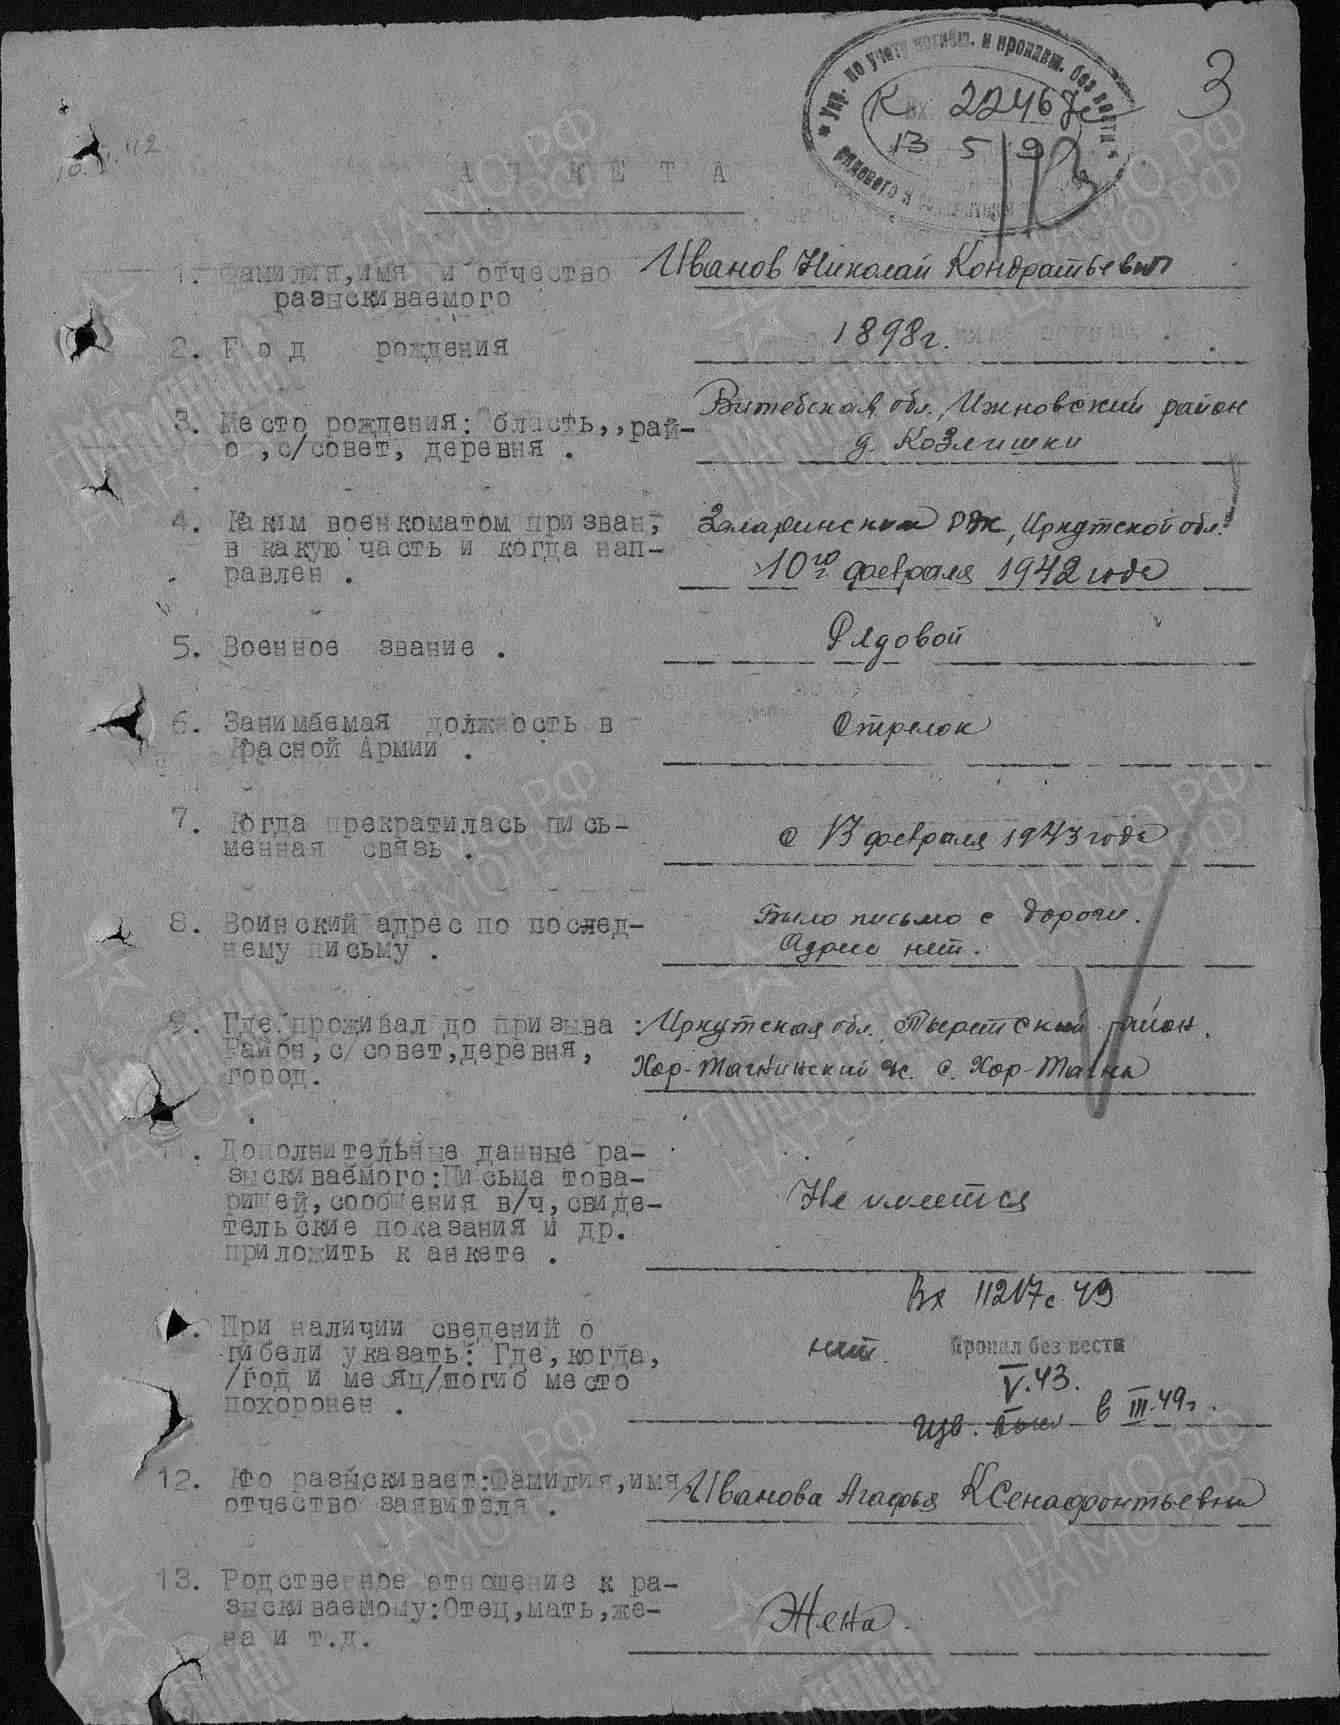 Упр. по учету погибш. и пропавш. без вести
рядового и
К вх 22467с
13 5
3
АНКЕТА
1. Фамилия, имя и отчество Иванов Николай Кондратьевич
разыскиваемого
2. Год рождения 1898 г.
3. Место рождения: Область,, рай- Витебская обл. Ижновский район
о ,с/совет, деревня . д. Козлишки
4. Каким военкоматом призван, Заларинским РВК, Иркутской обл.
в какую часть и когда нап- 10го февраля 1942 года
равлен .
5. Военное звание . Рядовой
6. Занимаемая должность в Стрелок
Красной Армии .
7. Когда прекратилась пись- с 13 февраля 1943 года
менная связь .
8. Воинский адрес по послед- Было письмо с дороги.
нему письму . Адреса нет.
9. Где проживал до призыва : Иркутская обл. Тыретский район.
Район, с/совет, деревня, Хор-Тагнинский с. Хор-Тагна
город.
Дополнительные данные ра-
зыскиваемого: Письма това-
рищей, сообщения в/ч, свиде- Не имеется
тельские показания и др.
приложить к анкете .
Вх 11217с 49
При наличии сведений о
гибели указать: Где, когда, нет. Пропал без вести
/год и месяц/погиб место V.43.
похоронен . изв. в III.49г.
12. Кто разыскивает: Фамилия, имя, Иванова Агафья Ксенафонтьевна
отчество заявителя .
13. Родственное отношение к ра-
зыскиваемому: Отец, мать, же- Жена.
на и т.д.
ЦАМО.РФ
ПАМЯТЬ
НАРОДА